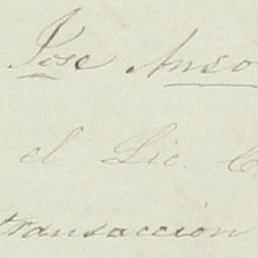 Jose Anso
el Lic. C
transaccion